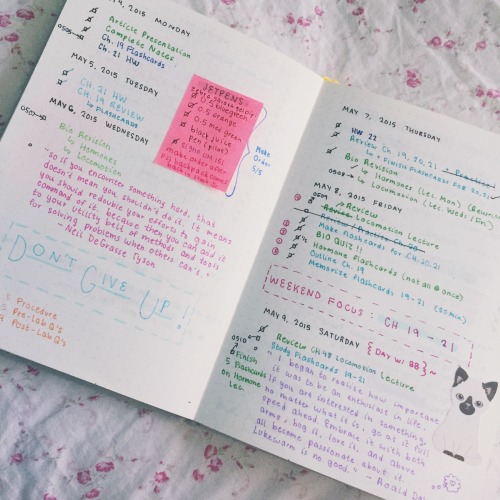 4, 2015 MONDAY
Article Presentation
Complete Notes
Ch. 19 Flashcards
Ch. 21 HW
MAY 5, 2015 TUESDAY
Ch. 21 HW
CH. 19 REVIEW
↳ FLASHCARDS
MAY 6, 2015 WEDNESDAY
Bio Revision
↳ Hormones
↳ Locomotion
"so if you encounter something hard, that
doesn't mean you shouldn't do it. it means
you should redouble your efforts to gain
command of it, because then you can add it
to your utility belt of methods and tools
for solving problems when others can't."
- Neil DeGrasse Tyson
DON'T GIVE UP!
Procedure
Pre-Lab Q's
Post-Lab Q's
JETPENS
0.5 bluegreen
0.5 orange
0.5 med green
black juice
pen (pilot)
Make
Order
5/5
MAY 7, 2015 THURSDAY
HW 22
Review Ch. 19, 20, 21 + Practice
↳ FINISH FLASHCARDS FOR 20, 21
Bio Revision
↳ Hormones (Lec. Mon)
↳ Locomotion (Lec. Wed)
MAY 8, 2015 FRIDAY
Review
Locomotion Lecture
Make Flashcards for CH. 20, 21
BIO QUIZ!!
Hormone Flashcards (not all @ once)
Outline CH. 19
Memorize Flashcards 19-21 (60 min)
WEEKEND FOCUS: CH 19 - 21
MAY 9, 2015 SATURDAY {DAY W/ BB}~
Review CH 48 Locomotion Lecture
Study Flashcards 19-21
Finish
5 Flashcards
on Hormone
Lec.
"I began to realize how important
it was to be an enthusiast in life.
If you are interested in something,
no matter what it is, go at it full
speed ahead. Embrace it with both
arms, hug it, love it, and above
all become passionate about it.
Lukewarm is no good." - Roald